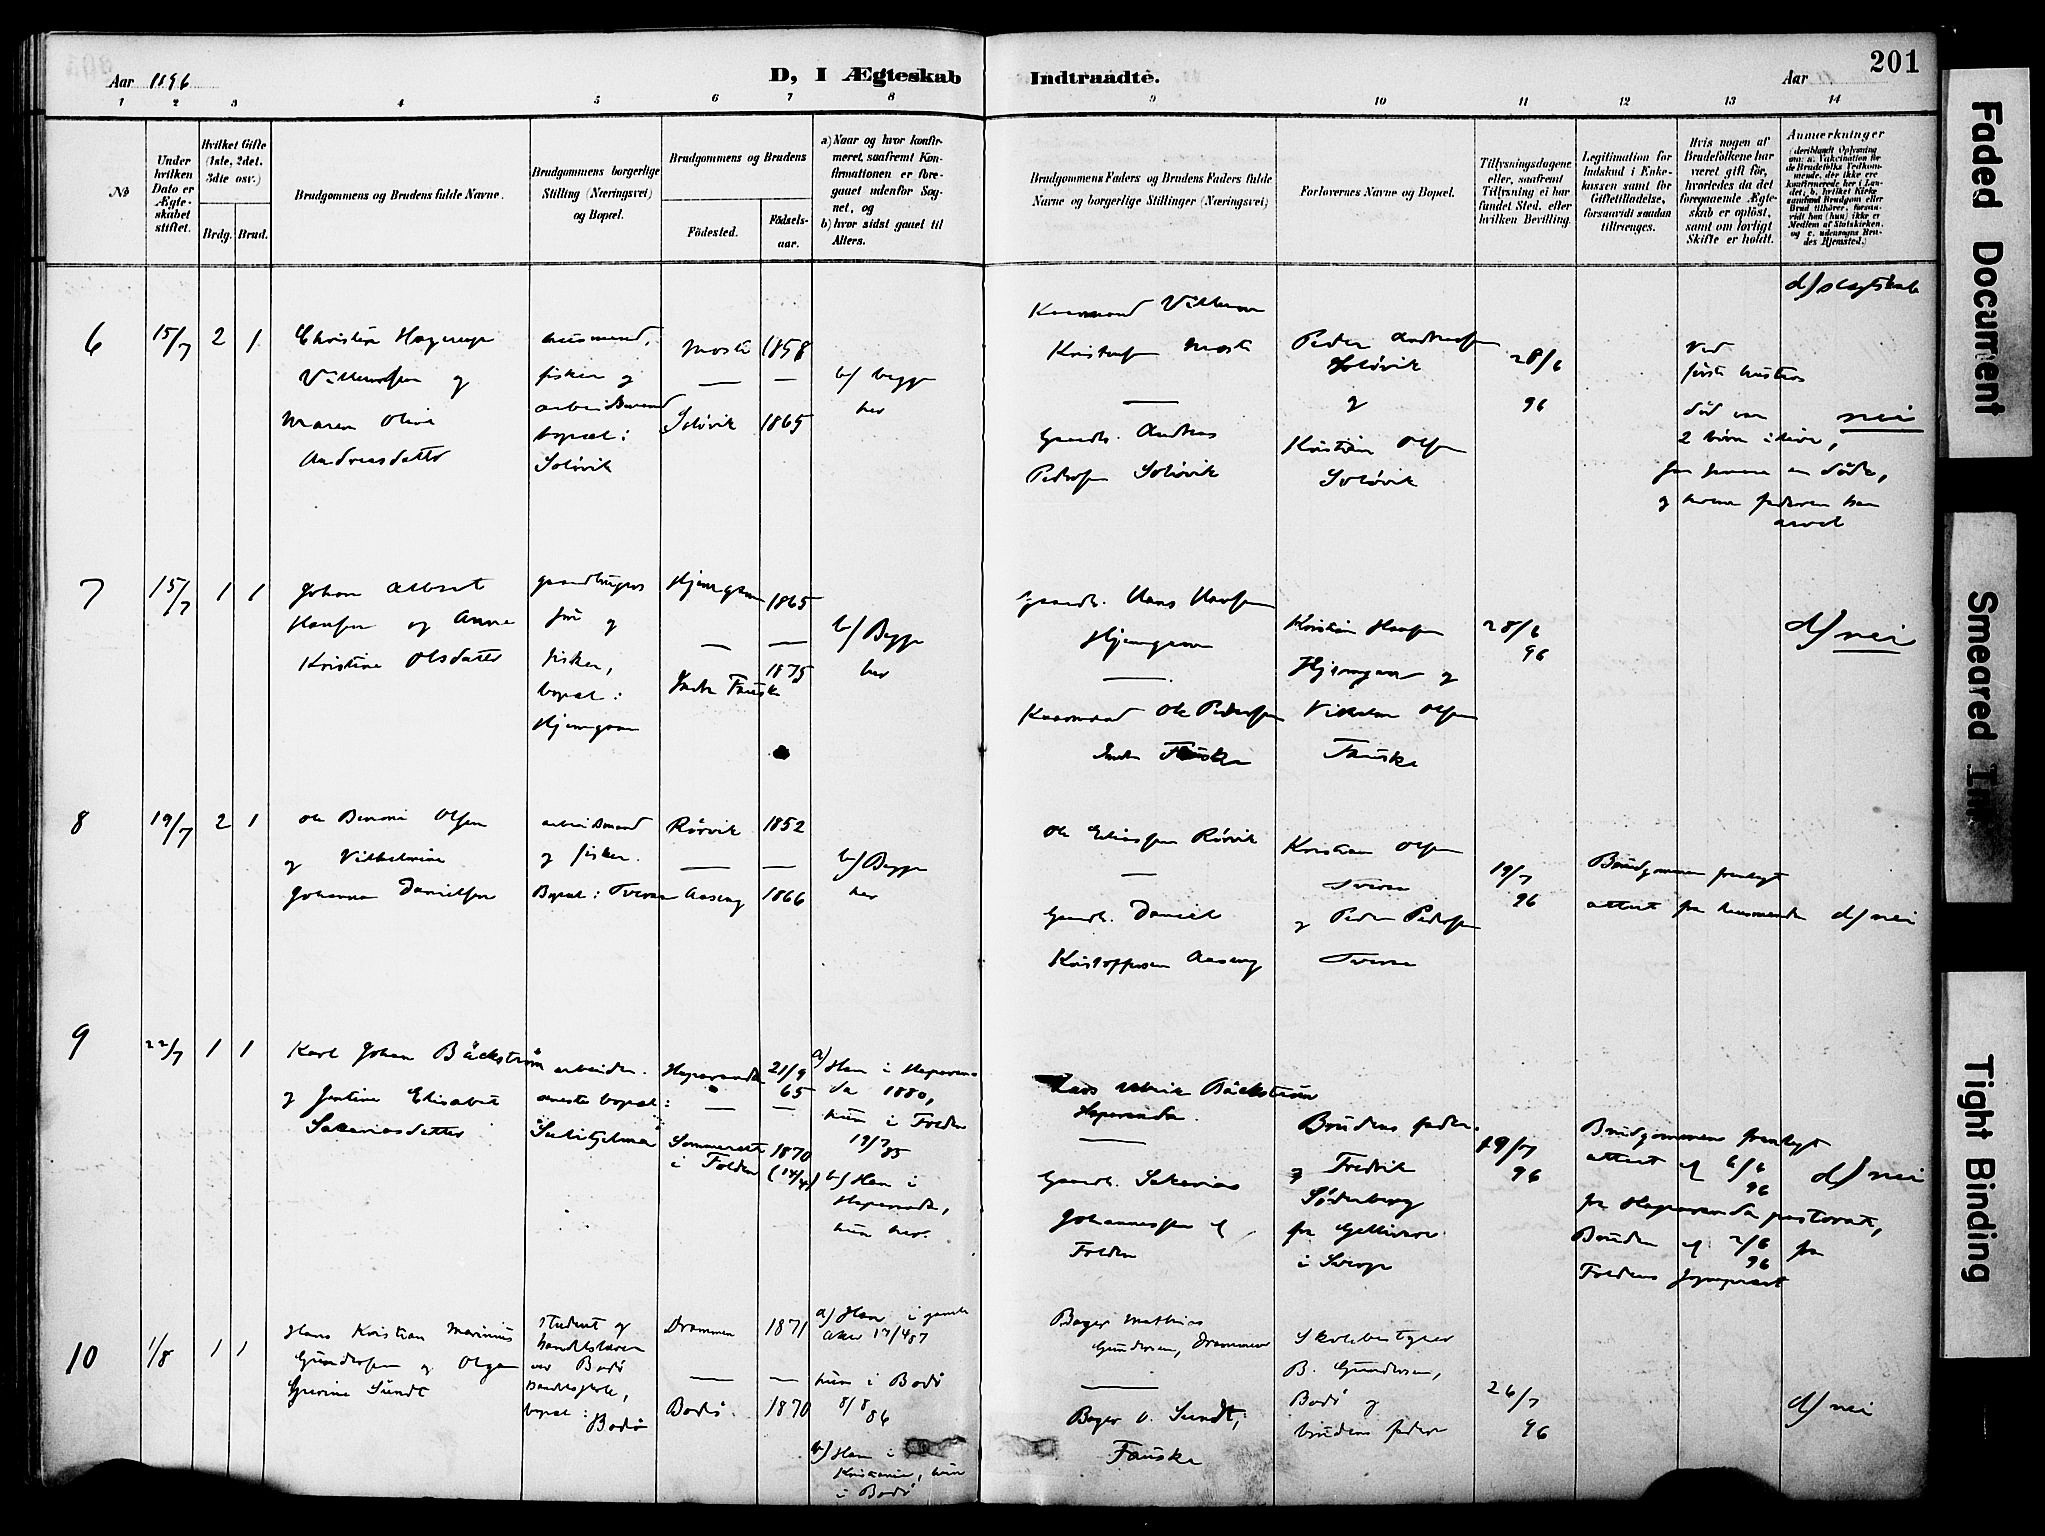 201
Aar 1896
D, I Ægteskab Indtraadte.
Aar
1 2 3 4 5 6 7 8 9 10 11 12 13 14
No
Under hvilken Dato er Ægteskabet stiftet.
Hvilket Gifte (1ste, 2det, 3dte osv.)
Brdg. Brud.
Brudgommens og Brudens fulde Navne.
Brudgommens borgerlige Stilling (Næringsvei) og Bopæl.
Brudgommens og Brudens
Fødested.
Fødselsaar.
a) Naar og hvor konfirmeret, saafremt Konfirmationen er foregaaet udenfor Sognet, og
b) hvor sidst gaaet til Alters.
Brudgommens Faders og Brudens Faders fulde Navne og borgerlige Stillinger (Næringsvei)
Forlovernes Navne og Bopæl.
Tillysningsdagene eller, saafremt Tillysning ei har fundet Sted, efter hvilken Bevilling.
Legitimation for Indskud i Enkekassen samt for Giftetilladelse, forsaavidt saadan tiltrænges.
Hvis nogen af Brudefolkene har været gift før, hvorledes da det foregaaende Ægteskab er opløst, samt om lovligt Skifte er holdt.
Anmerkninger
6
15/7
2
1
Christen Hagerup
Villumsen og
Maren Oline
Andreasdatter
husmand,
fisker og
arbeidsmand
bopæl:
Soløvik
Moste
1858
— —
Soløvik
1865
b/ begge
her
Kristofer Moste
—
Gaardb. Andreas
Pedersen Soløvik
Peder Andreassen
Soløvik
og
Kristian Olsen
Soløvik
28/6
96
Ved
første hustrus
død var
2 børn i live,
d/ slegtskab
nei
7
15/7
1
1
Johan Albert
Hansen og Anne
Kristine Olsdatter
gaardbrugers
søn og
fisker,
bopæl:
Hjemgam
Hjemgam
1865
— —
Indre Fauske
1875
b/ Begge
her
Gaardb. Hans Hansen
Hjemgam
—
Ole Pedersen
Indre Fauske
Kristian Hansen
Hjemgam og
Vilhelm Olsen
Fauske
28/6
96
d/ nei
8
19/7
2
1
Ole Benoni Olsen
og Vilhelmine
Johanna Danielsen
arbeidsmand
og fisker.
Bopæl: Tveraa
Rørvik
1852
— —
Aaseng
1866
b/ Begge
her
Ole Eliassen Rørvik
—
Gaardb. Daniel
Kristoffersen Aaseng
Kristian Olsen
Tveraa
og Peder Pedersen
Tveraa
19/7
96
Brudgommen fremlagt
attest fra lensmanden
d/ nei
9
22/7
1
1
Karl Johan Bäckström
og Jentine Elisabet
Sakariasdatter
arbeider.
bopæl:
Sulitjelma
Haparanda
21/9
65
— —
Sommerset
i Folden
1870
(14/4)
a) Han i Haparanda
1880,
hun i Folden
19/7 85
b/ Han i
Haparanda,
hun her.
Lars Ulrik Bäckström
Haparanda.
—
Gaardb. Sakarias
Johannessen af
Folden
Brudens fader.
og Fredrik
Söderberg
fra Gellivare
i Sverge
19/7
96
Brudgommen fremlagt
attest af 6/6
96
fra Haparanda pastorat,
Bruden af 2/6
96 fra
Foldens sogneprest
d/ nei
10
1/8
1
1
Hans Kristian Marinius
Gundersen og Olga
Gurine Sundt
student og
handelslærer
ved Bodø
handelsskole,
bopæl:
Bodø
Drammen
1871
— —
Bodø.
1870
a) Han i gamle
Aker 17/4 87
hun i Bodø
8/8 86
b/ Han i
Kristiania, hun
i Bodø
Bager Mathias
Gundersen, Drammen
—
Bager O. Sundt,
Fauske
Skolebestyrer
B. Gundersen,
Bodø og
brudens fader
26/7
96
d/ nei
Faded Document
Smeared Ink
Tight Binding